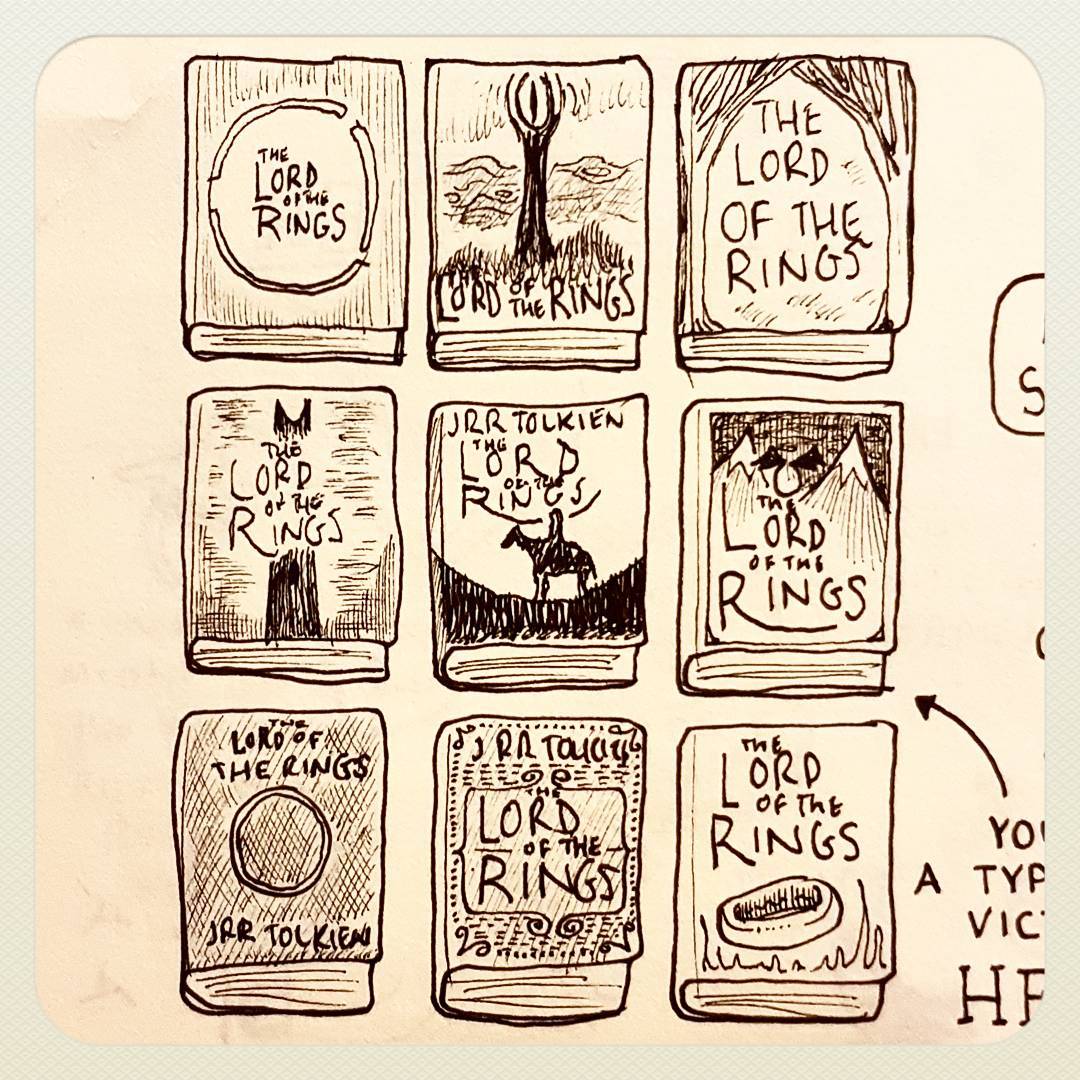 THE
LORD
OF THE
RINGS
THE
LORD OF
THE RINGS
THE
LORD
OF THE
RINGS
THE
LORD
OF THE
RINGS
JRR TOLKIEN
THE
LORD
OF THE
RINGS
THE
LORD
OF THE
RINGS
THE
LORD OF
THE RINGS
JRR TOLKIEN
J RR TOLKIEN
THE
LORD
OF THE
RINGS
THE
LORD
OF THE
RINGS
A